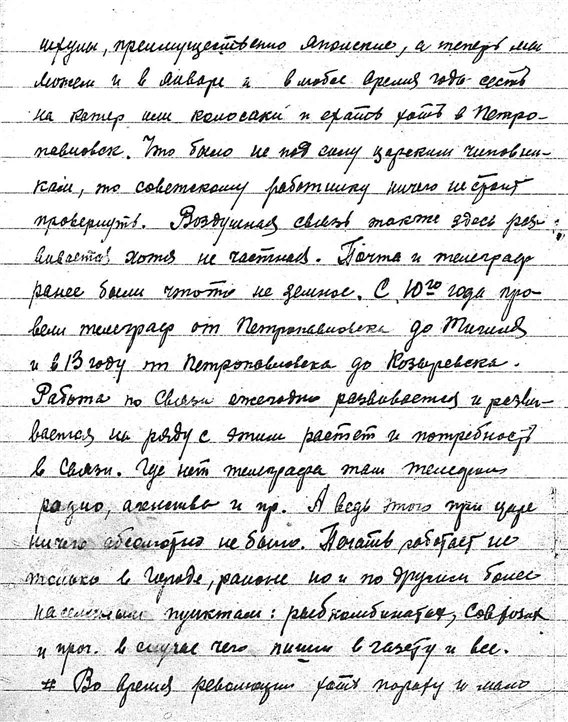 шхуны, преимущественно японские, а теперь мы
можем и в январе и в любое время года сесть
на катер или колосаки и ехать хоть в Петро-
павловск. Что было не под силу царским чиновни-
кам, то советскому работнику ничего не стоит
провернуть. Воздушная связь также здесь раз-
вивается хотя не частная. Почта и телеграф
ранее были чтото не земное. С 10го года про-
вели телеграф от Петропавловска до Тигиля
и в 13 году от Петропавловска до Козыревска.
Работа по связи ежегодно развивается и разви-
вается на ряду с этим растет и потребность
в связи. Где нет телеграфа там телефон
радио, агенства и пр. А ведь этого при царе
ничего абсолютно не было. Печать работает не
только в городе, районе но и по другим более
населенным пунктам: рыбкомбинатах, совхозах
и проч. в случае чего пиши в газету и все.
# Во время революции хоть пороху и мало